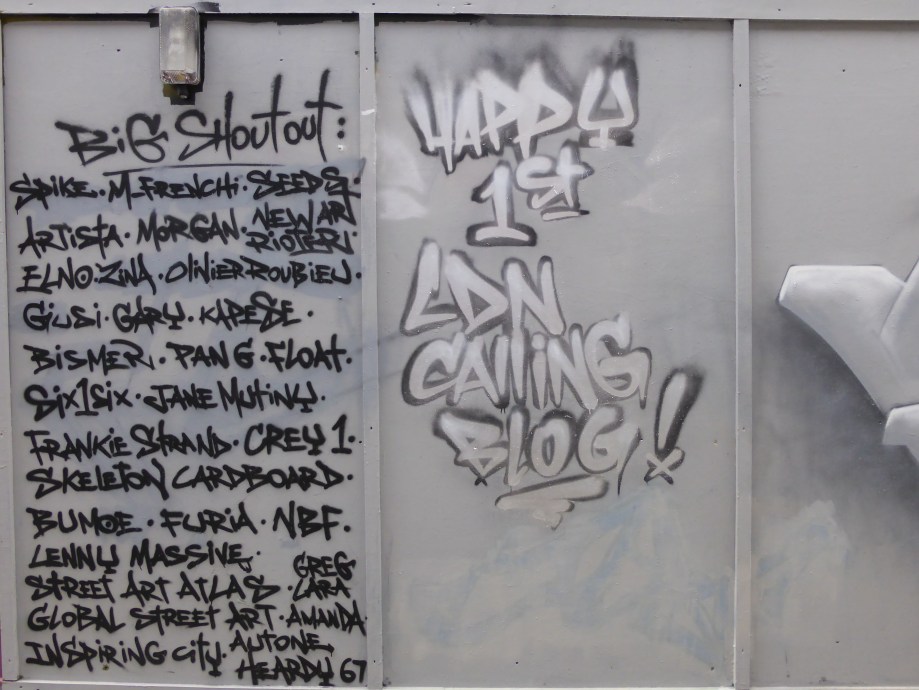 BiG SHoutout:
SPIKE · M-FRENCHi · SEEDS ·
ARTISTA · MORGAN · NEW ART
RIOTER ·
ELNO · ZINA · OLIVIER ROUBIEU ·
GIUSI · GARY · KAPESE ·
BISMER · PANG · FLOAT ·
Six1Six · JANE MUTINY ·
FRANKIE STRAND · CREY 1 ·
SKELETON CARDBOARD ·
BUMOE · FURIA · NBF ·
LENNY MASSIVE ·
STREET ART ATLAS · GREG
LARA
GLOBAL STREET ART · AMANDA
INSPIRING CITY · AUTONE
HEARDY 67
HAPPY
1ST
LDN
CAllING
BLOG!